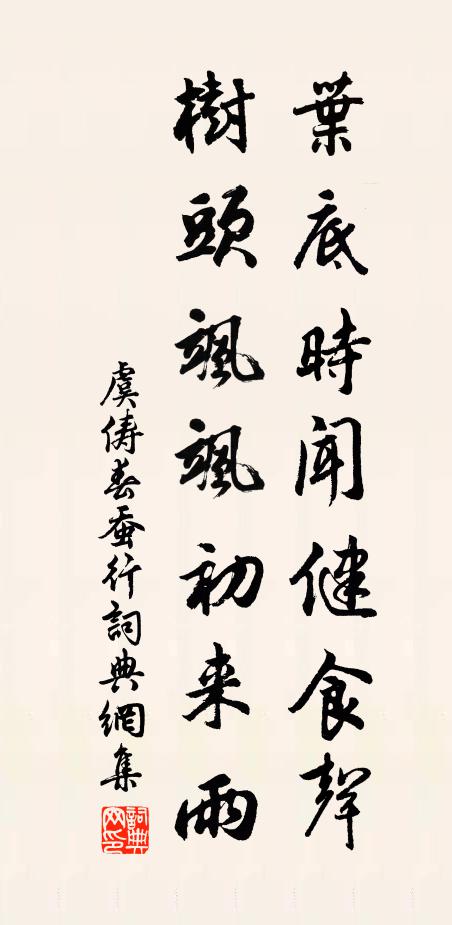 葉底時聞健食聲
樹頭颯颯初来雨
虞儔春蚕行詞典網集
詞典网印